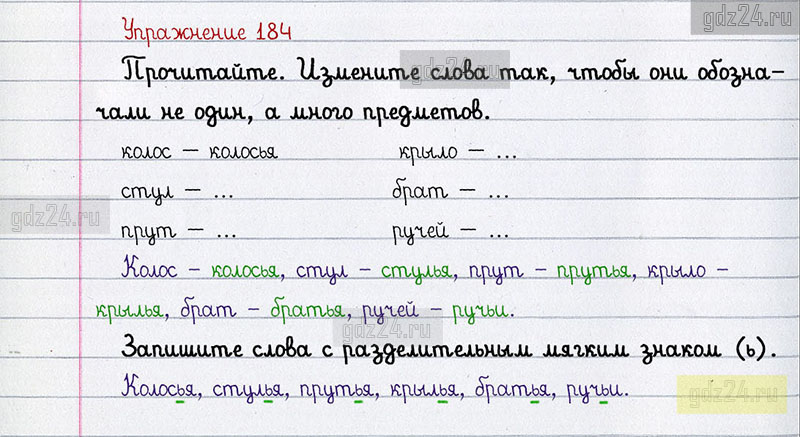 gdz24.ru
Упражнение 184
Прочитайте. Измените слова так, чтобы они обозна-
gdz24.ru
чали не один, а много предметов.
колос – колосья крыло – ...
стул – ... брат – ...
gdz24.ru
прут – ... ручей – ...
Колос – колосья, стул – стулья, прут – прутья, крыло –
крылья, брат – братья, ручей – ручьи.
gdz24.ru
Запишите слова с разделительным мягким знаком (ь).
Колосья, стулья, прутья, крылья, братья, ручьи.
gdz24.ru